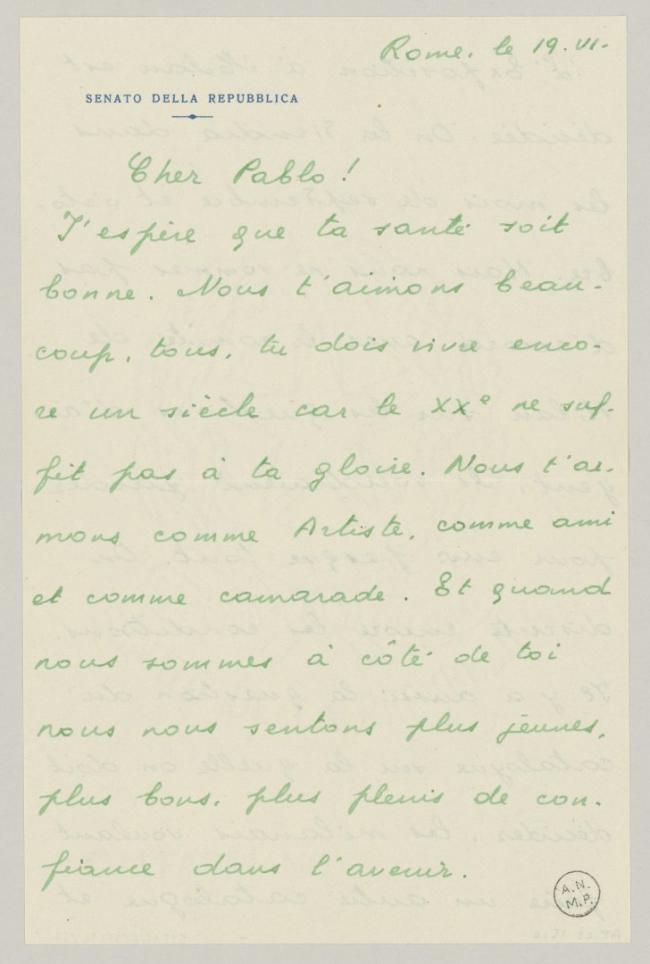 Rome, le 19.VI.
SENATO DELLA REPUBBLICA
Cher Pablo !
J'espère que ta santé soit
bonne. Nous t'aimons beau-
coup, tous, tu dois vivre enco-
re un siècle car le XXe ne suf-
fit pas à ta gloire. Nous t'ai-
mons comme Artiste, comme ami
et comme camarade. Et quand
nous sommes à côté de toi
nous nous sentons plus jeunes,
plus bons, plus pleins de con-
fiance dans l'avenir.
A.N.
M.P.